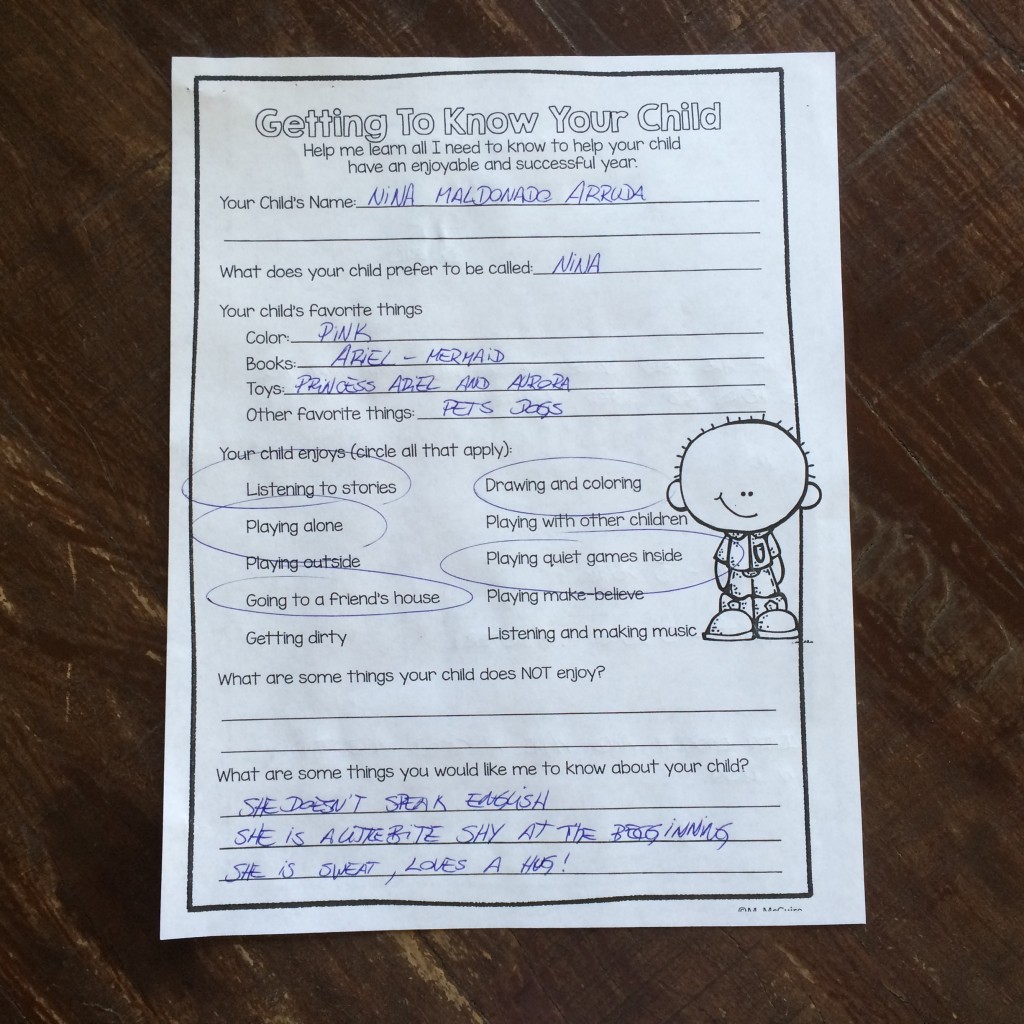 Getting To Know Your Child
Help me learn all I need to know to help your child
have an enjoyable and successful year.
Your Child's Name: NINA MALDONADO ARRUDA
What does your child prefer to be called: NINA
Your child's favorite things
Color: PINK
Books: ARIEL - MERMAID
Toys: PRINCESS ARIEL AND AURORA
Other favorite things: PETS DOGS
Your child enjoys (circle all that apply):
Listening to stories Drawing and coloring
Playing alone Playing with other children
Playing outside Playing quiet games inside
Going to a friend's house Playing make-believe
Getting dirty Listening and making music
What are some things your child does NOT enjoy?
What are some things you would like me to know about your child?
SHE DOESN'T SPEAK ENGLISH
SHE IS A LITTLE BITE SHY AT THE BEGGINNING
SHE IS SWEAT, LOVES A HUG!